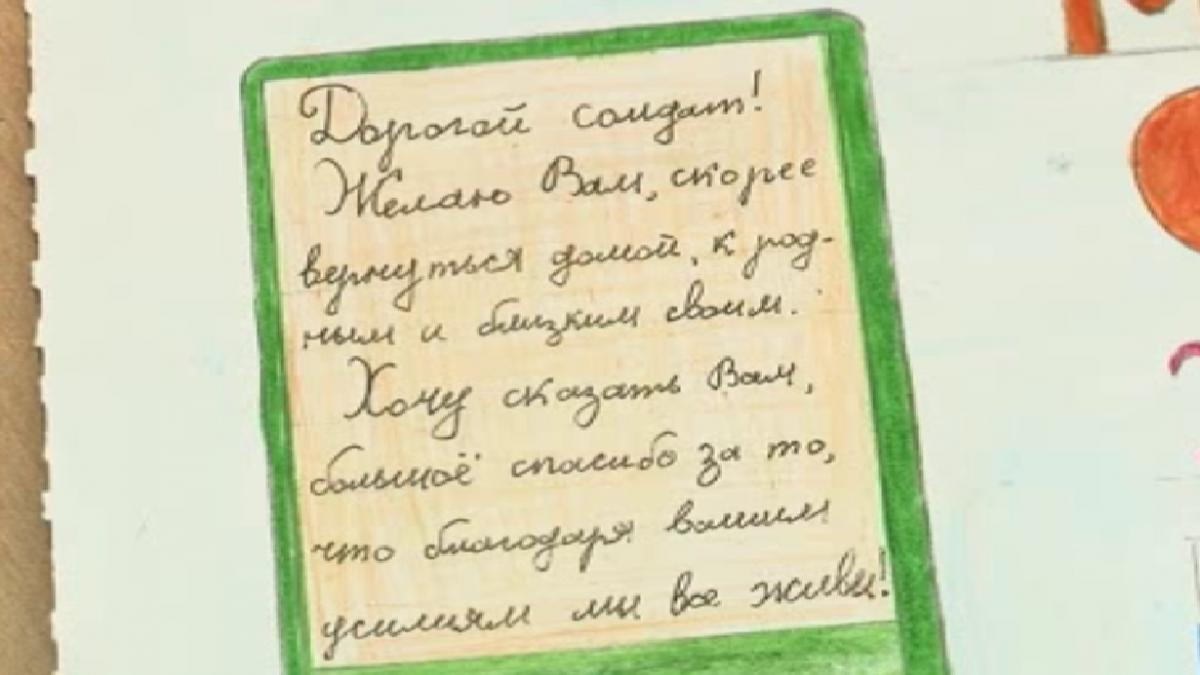 Дорогой солдат!
Желаю Вам, скорее
вернуться домой, к род-
ным и близким своим.
Хочу сказать Вам,
большоё спасибо за то,
что благодаря вашим
усилиям мы все живы!